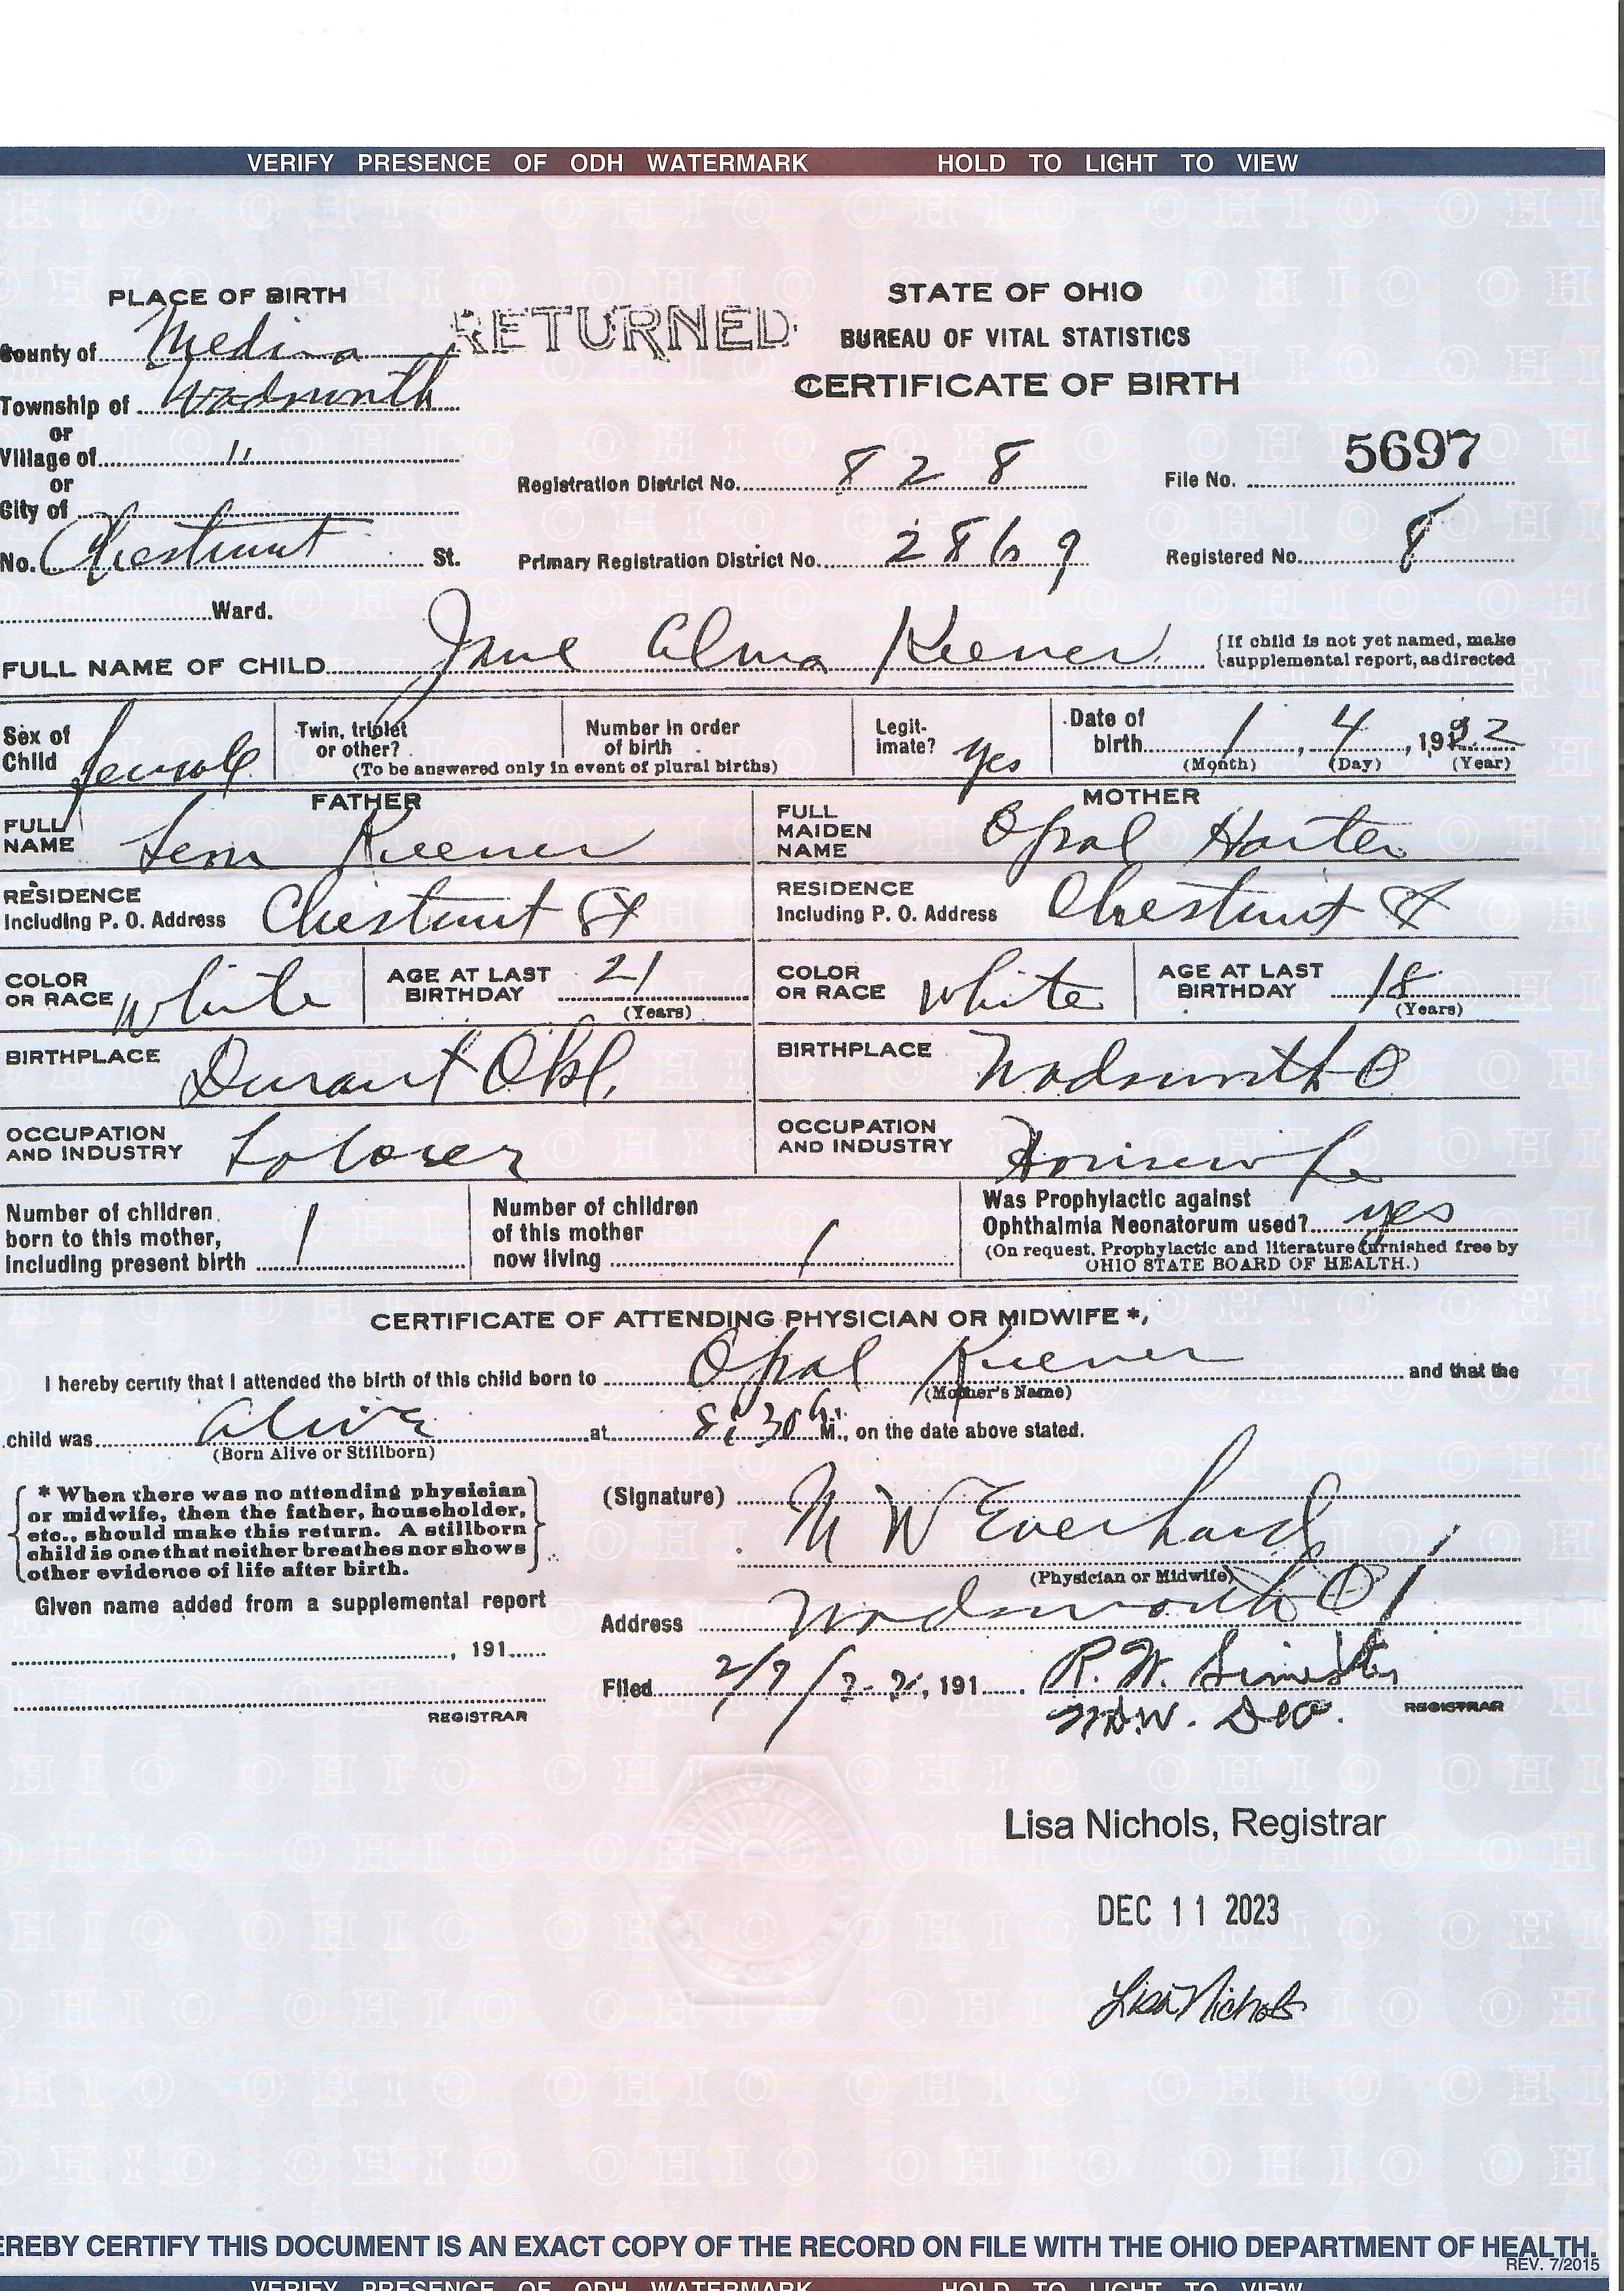 VERIFY PRESENCE OF ODH WATERMARK HOLD TO LIGHT TO VIEW
PLACE OF BIRTH
County of Medina
RETURNED
Township of Wadsworth
or
Village of "
or
City of
No. Chestnut St.
Ward.
STATE OF OHIO
BUREAU OF VITAL STATISTICS
CERTIFICATE OF BIRTH
Registration District No. 828 File No. 5697
Primary Registration District No. 2869 Registered No. 8
FULL NAME OF CHILD Jane Alma Keener {If child is not yet named, make
supplemental report, as directed
Sex of Child female
Twin, triplet or other?
Number in order of birth
(To be answered only in event of plural births)
Legitimate? yes
Date of birth 1, 4, 1922
(Month) (Day) (Year)
FATHER
FULL NAME Lem Keener
RESIDENCE
Including P. O. Address Chestnut St
COLOR OR RACE White
AGE AT LAST BIRTHDAY 21
(Years)
BIRTHPLACE Durant Okl.
OCCUPATION AND INDUSTRY Laborer
MOTHER
FULL MAIDEN NAME Opal Harter
RESIDENCE
Including P. O. Address Chestnut St
COLOR OR RACE White
AGE AT LAST BIRTHDAY 18
(Years)
BIRTHPLACE Wadsworth O
OCCUPATION AND INDUSTRY Housewife
Number of children born to this mother, including present birth 1
Number of children of this mother now living 1
Was Prophylactic against Ophthalmia Neonatorum used? yes
(On request, Prophylactic and literature furnished free by
OHIO STATE BOARD OF HEALTH.)
CERTIFICATE OF ATTENDING PHYSICIAN OR MIDWIFE *
I hereby certify that I attended the birth of this child born to Opal Keener and that the
(Mother's Name)
child was Alive at 8:30 M., on the date above stated.
(Born Alive or Stillborn)
* When there was no attending physician
or midwife, then the father, householder,
etc., should make this return. A stillborn
child is one that neither breathes nor shows
other evidence of life after birth.
Given name added from a supplemental report
, 191
REGISTRAR
(Signature) M W Everhard
(Physician or Midwife)
Address Wadsworth O
Filed 2/7/22, 191 R. W.
REGISTRAR
Lisa Nichols, Registrar
DEC 11 2023
Lisa Nichols
EREBY CERTIFY THIS DOCUMENT IS AN EXACT COPY OF THE RECORD ON FILE WITH THE OHIO DEPARTMENT OF HEALTH.
REV. 7/2015
VERIFY PRESENCE OF ODH WATERMARK HOLD TO LIGHT TO VIEW